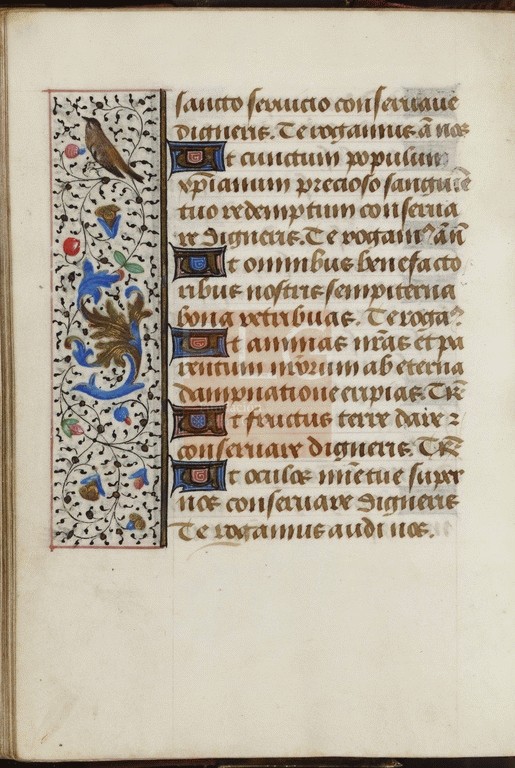 sancto seruicio conseruare
digneris. Te rogamus a᷑ nos
Ut cunctum populum
xp̄ianum precioso sanguīe
tuo redemptum conserua
re digneris. Te rogamꝰ au᷑
Ut omnibus benefacto
ribus nostris sempiterna
bona retribuas. Te rogaꝰ
Ut animas nr̄as et pa
rentum nr̄orum ab eterna
dampnatione eripias. TR̄
Ut fructus terre dare ⁊
conseruare digneris. TR̄
Ut oculos mīe tue super
nos conseruare digneris
Te rogamus audi nos.